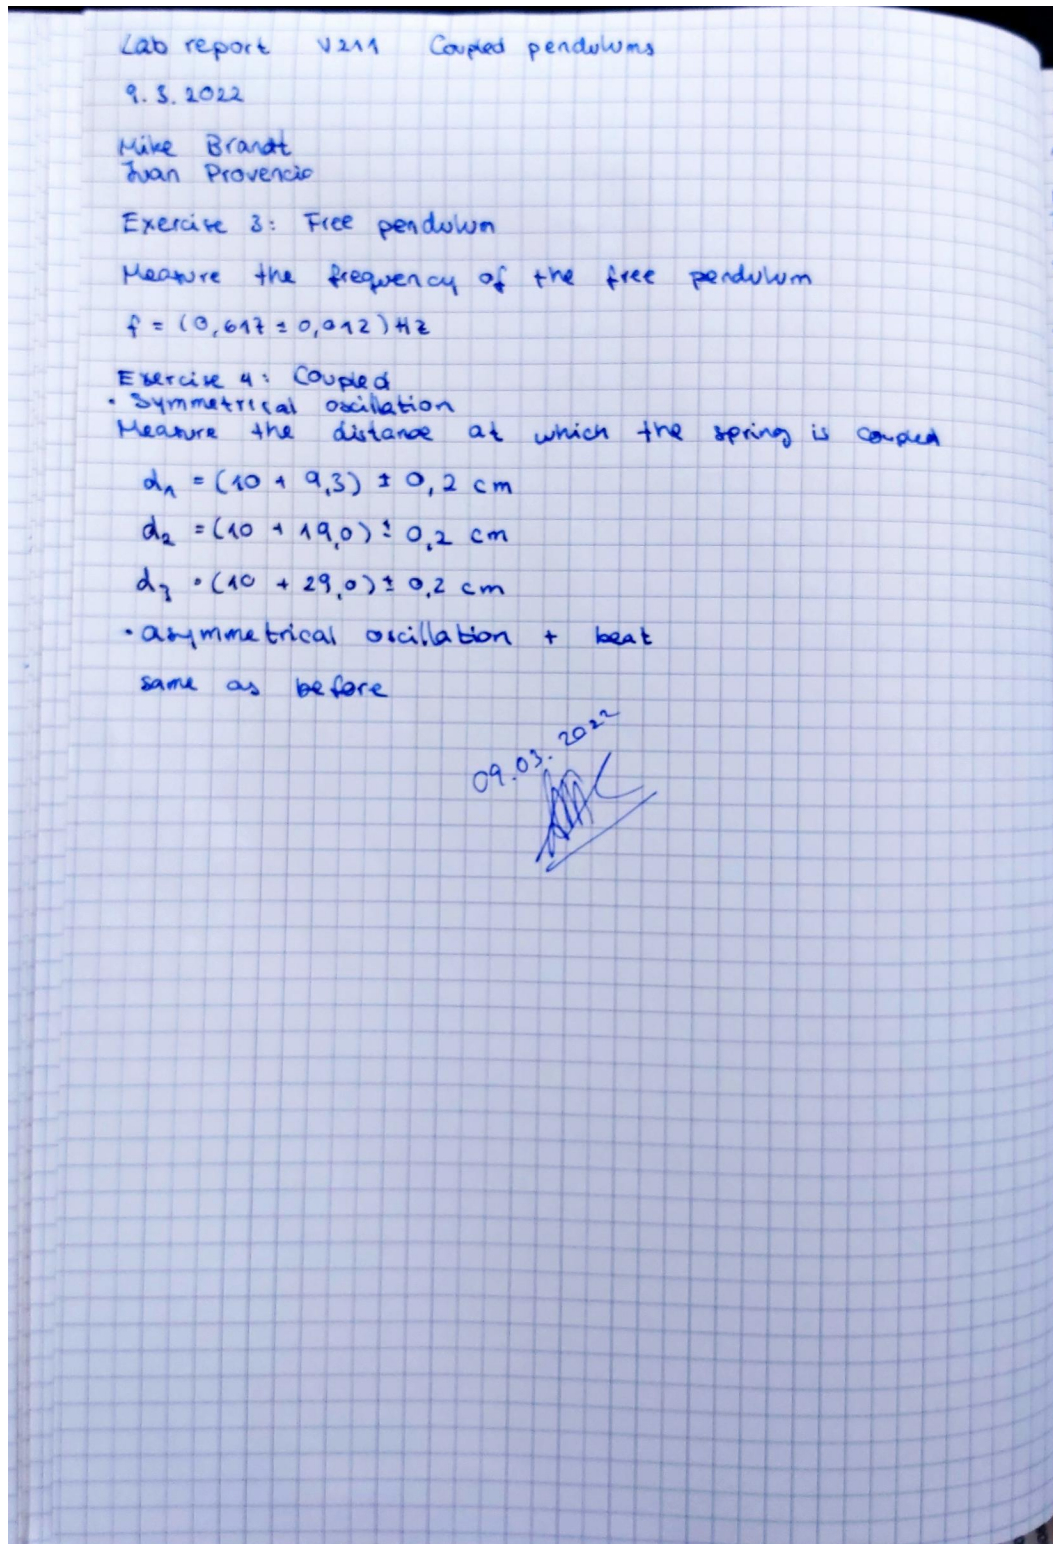 Lab report V211 Coupled pendulums
9.3.2022
Mike Brandt
Juan Provencio
Exercise 3: Free pendulum
Measure the frequency of the free pendulum
f = (0,617 ± 0,012) Hz
Exercise 4: Coupled
• Symmetrical oscillation
Measure the distance at which the spring is coupled
d₁ = (10 + 9,3) ± 0,2 cm
d₂ = (10 + 19,0) ± 0,2 cm
d₃ = (10 + 29,0) ± 0,2 cm
• asymmetrical oscillation + beat
same as before
09.03.2022